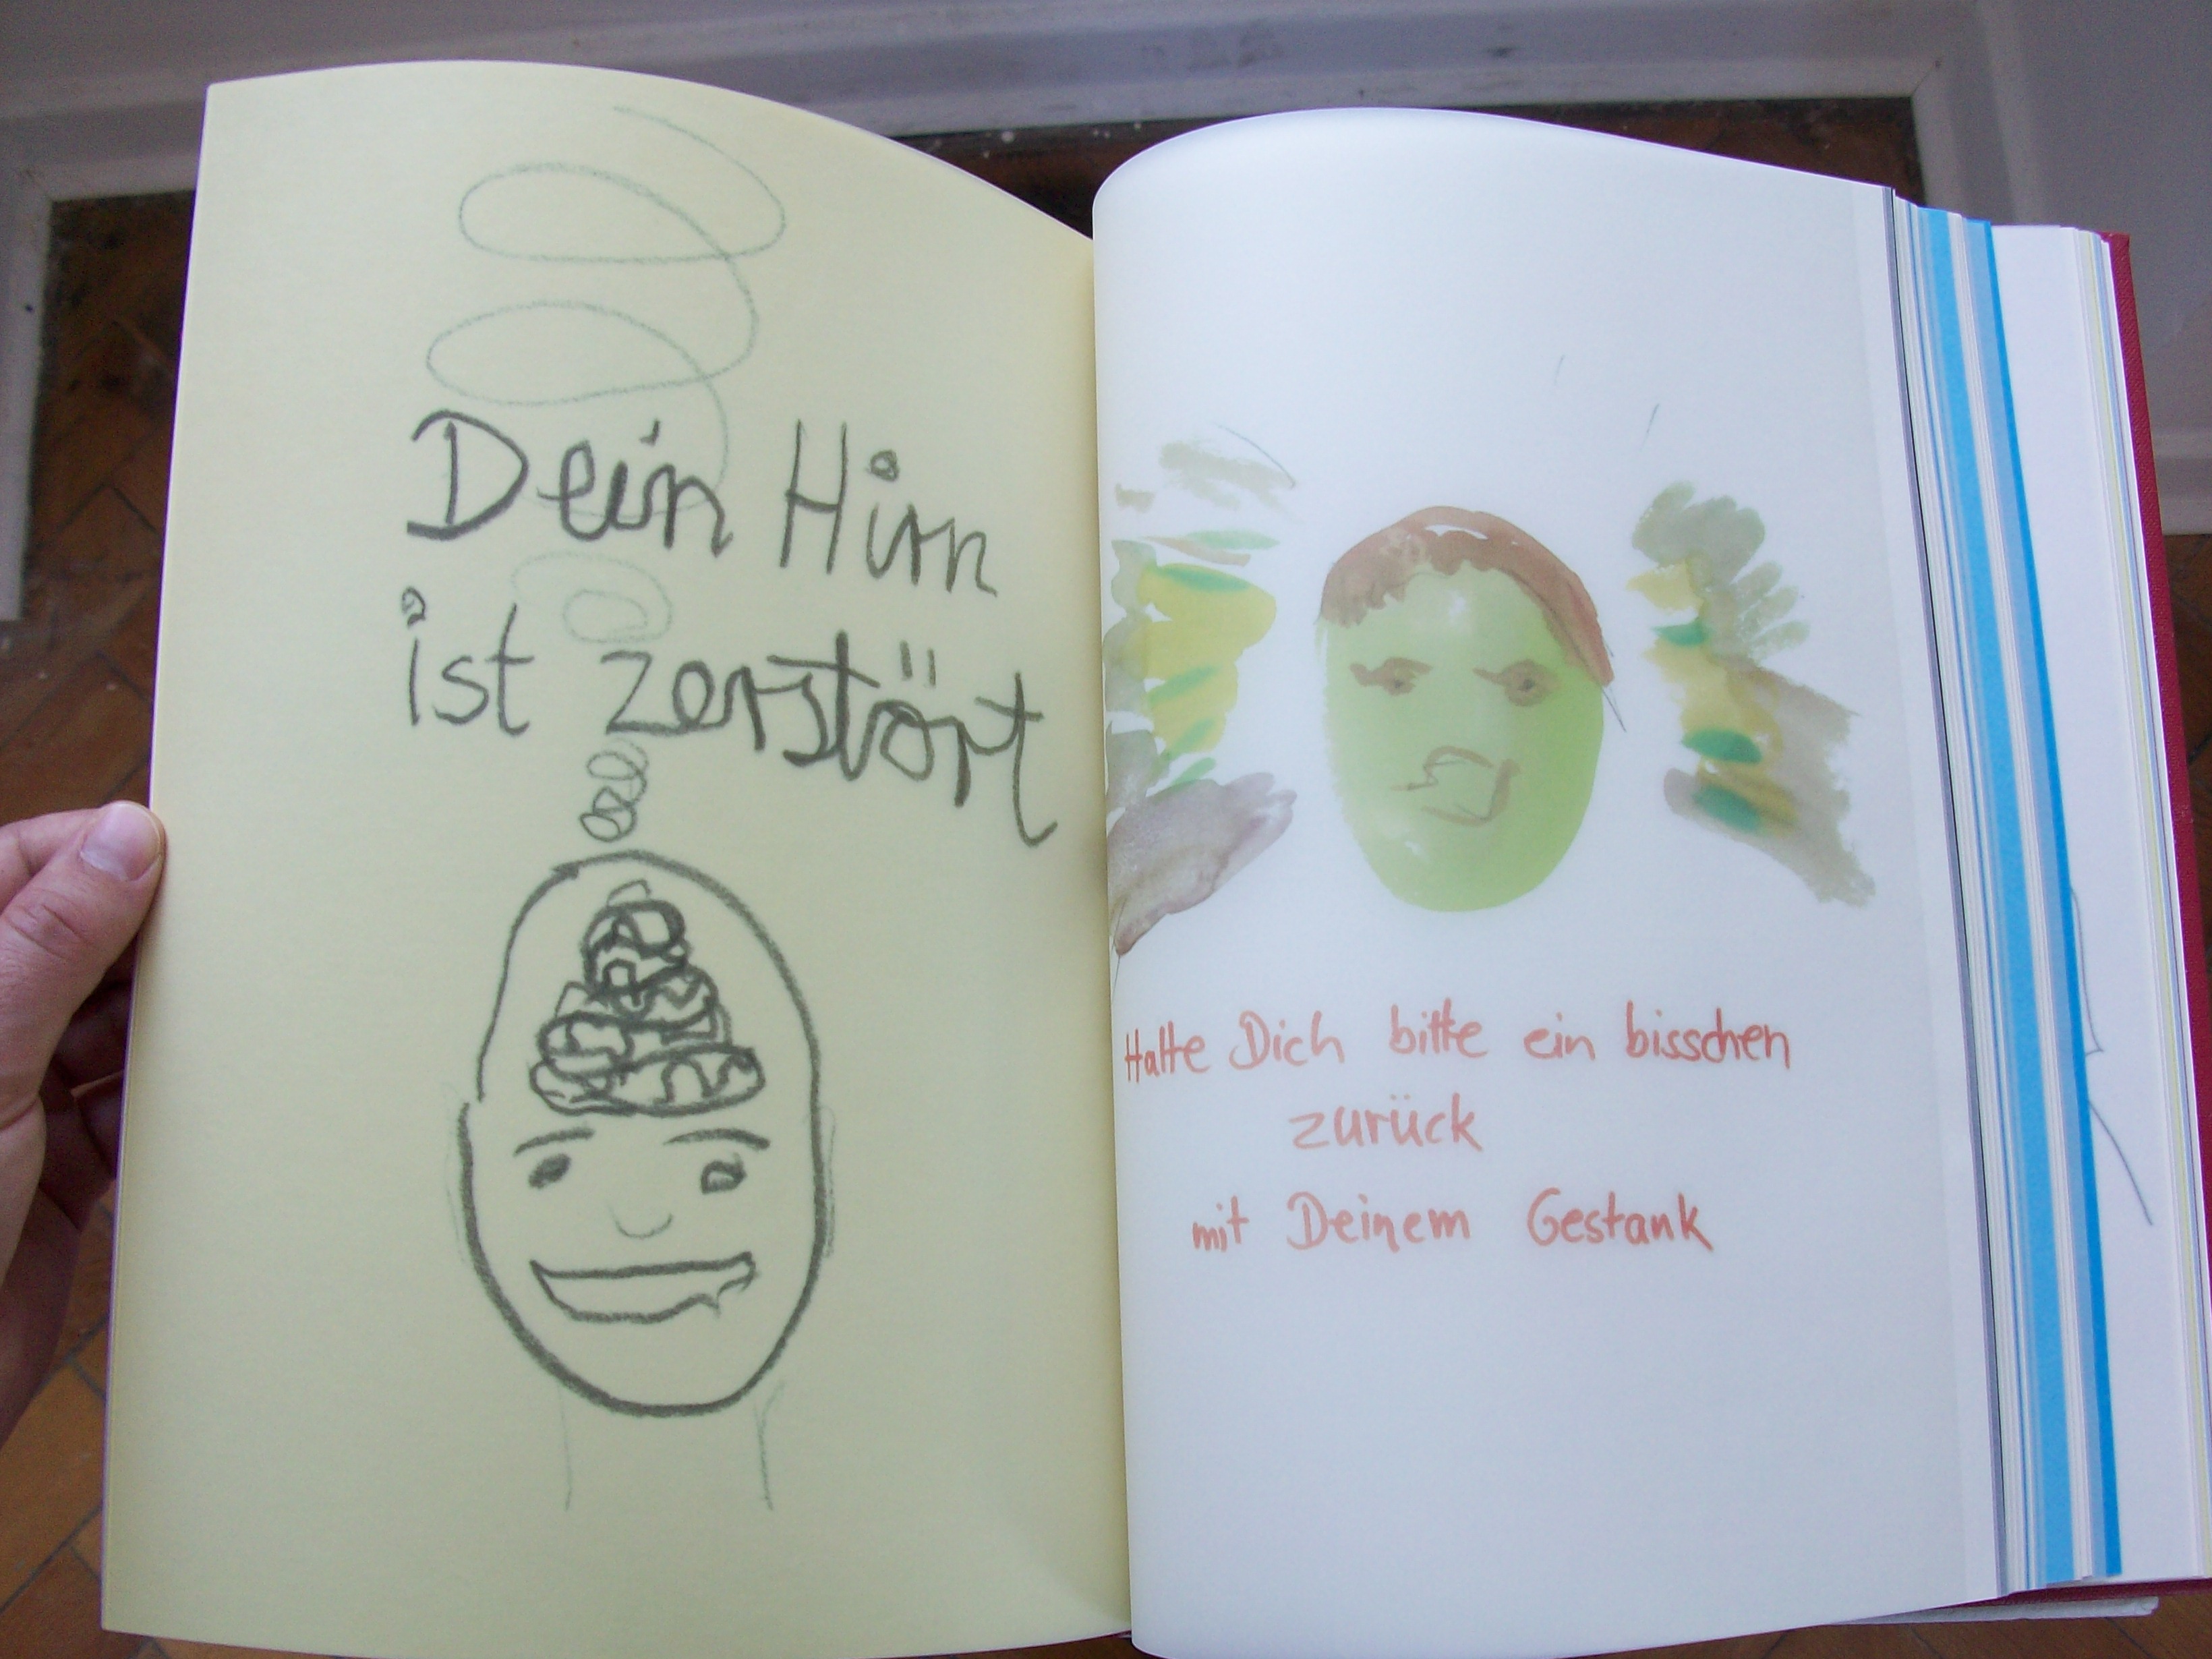 Dein Hirn
ist zerstört
Halte Dich bitte ein bisschen
zurück
mit Deinem Gestank